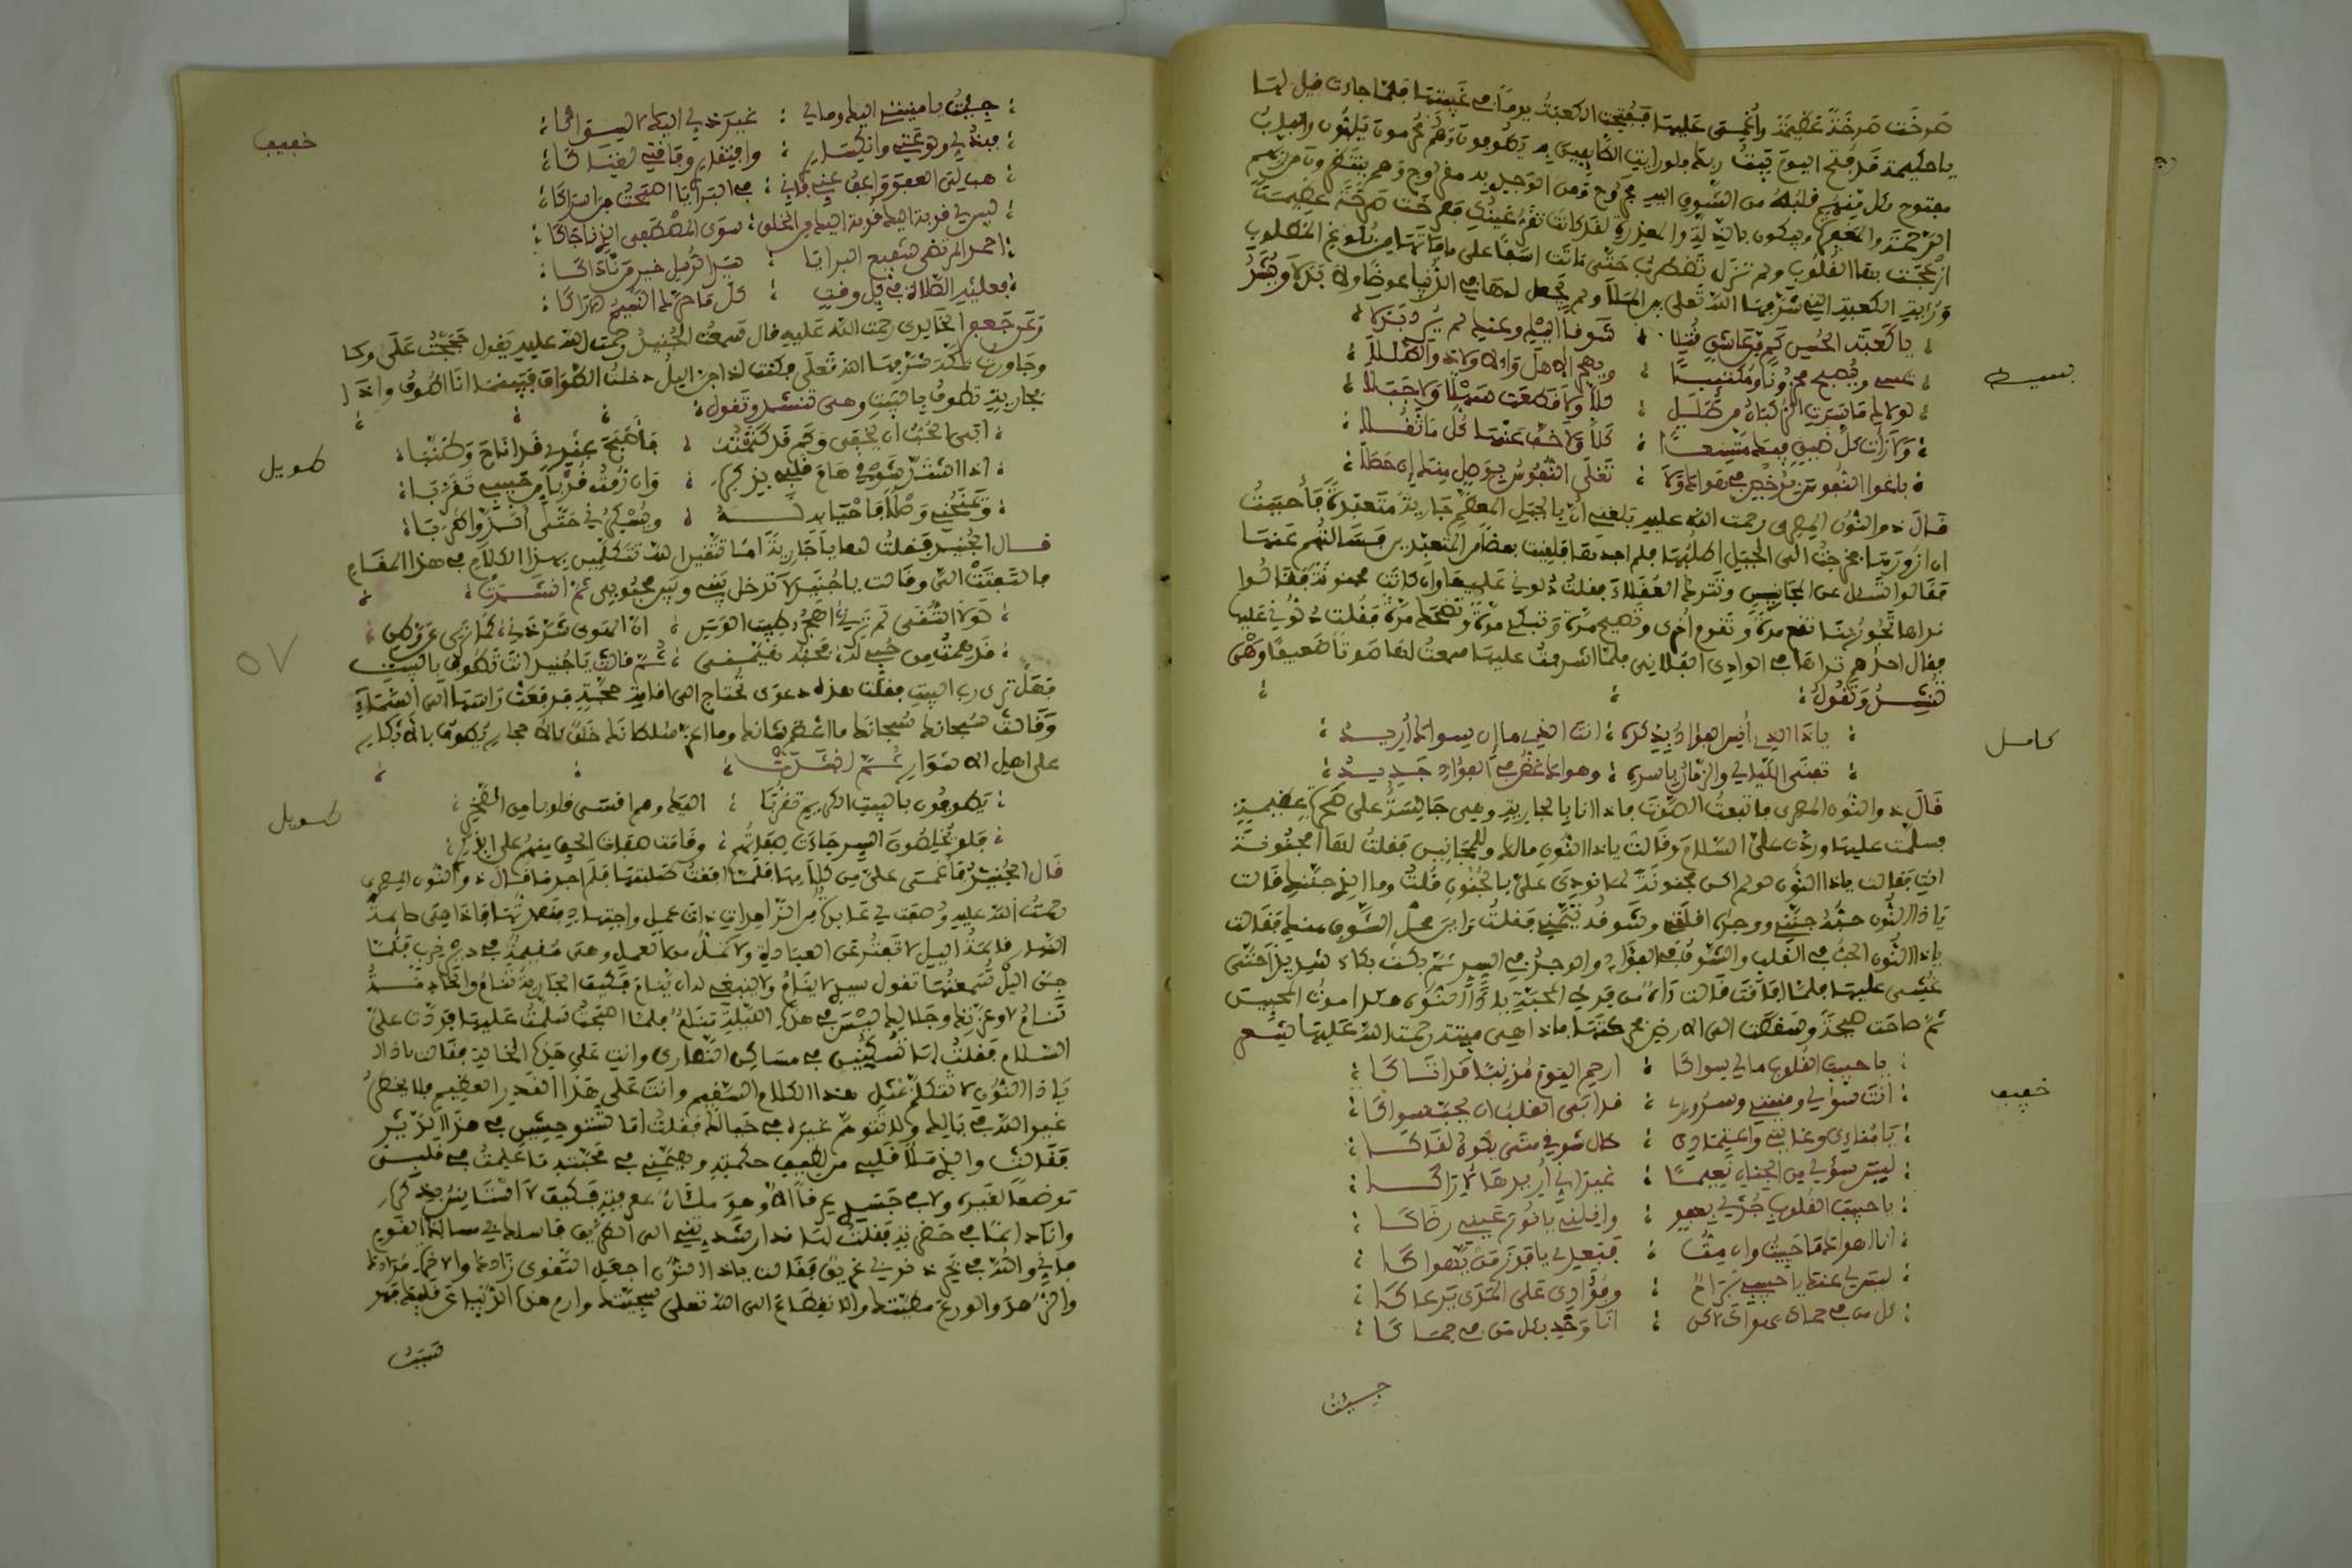 صرخت صرخة عظيمة وأغمي عليها ففتحت الكعبة يوما في غيبتها فلما جاءت قيل لها
يا حكيمة قد فتح اليوم بيت ربك فلو رأيت الطايفين به يطوفون وهم محرمون يلبون والباب
مفتوح وكل منهم قلبه من الشوق اليه مجروح ومن الوجل به مقروح وهم ينتظرون من ربهم
الرحمة والمغفرة ويبكون بالذلة والمعذرة لقد كانت تقر عينك فصرخت صرخة عظيمة
ازعجت بها القلوب ولم تزل تضطرب حتى ماتت اسفا على ما فاتها من بلوغ المطلوب
ورؤية الكعبة التي شرفها الله تعلى بين الملا ولم يجعل لها في الدنيا عوضا ولا بدلا وينشد
بسيط
يا كعبة الحسن كم من عاشق قتلا ؛ شوقا اليك وعنك لم يرد بدلا
يمسي ويصبح محزونا ومكتئبا ؛ ويهجر الاهل والاولاد والطللا
لولاك ما سرت الركبان من طلل ؛ كلا ولا قطعت سهلا ولا جبلا
ولا رأت كل ضيق فيك متسعا ؛ كلا ولا خف عنها كل ما ثقلا
باعوا النفوس برخص في هواك ولا ؛ تغلى النفوس بوصل منك إن حصلا
قال ذو النون المصري رحمة الله عليه بلغني ان بالجبل المعظم جارية متعبدة فأحببت
ان ازورها فخرجت الى الجبل اطلبها فلم اجدها فلقيت بعضا من المتعبدين فسألتهم عنها
فقالوا تسأل عن المجانين وتترك العقلاء فقلت دلوني عليها وان كانت مجنونة فقالوا
نراها تجوز بنا تقع مرة وتقوم أخرى وتصيح مرة وتبكي مرة وتضحك مرة فقلت دلوني عليها
فقال احدهم تراها في الوادي الفلاني فلما اشرفت عليها سمعت لها صوتا ضعيفا وهي
تنشد وتقول
كامل
يا ذا الذي أنس الفؤاد بذكره ؛ انت الذي ما إن سواك أريد
تفنى الليالي والزمان بأسره ؛ وهواك غض في الفؤاد جديد
قال ذو النون المصري فاتبعت الصوت فاذا انا بالجارية وهي جالسة على صخرة عظيمة
فسلمت عليها وردت علي السلام وقالت يا ذا النون مالك وللمجانين فقلت لها أمجنونة
انت فقالت يا ذا النون لو لم اكن مجنونة لما نودي علي بالجنون قلت وما الذي جننك قالت
يا ذا النون حبه جنني ووجده اقلقني وشوقه تيمني فقلت اين محل الشوق منك فقالت
يا ذا النون الحب في القلب والشوق في الفؤاد والوجد في السر ثم بكت بكاء شديدا حتى
غشي عليها فلما افاقت قالت
ثم صاحت صيحة وسقطت الى الارض فحركتها فاذا هي ميتة رحمة الله عليها شعر
خفيف
يا حبيب القلوب ما لي سواكا ؛ ارحم اليوم مذنبا قد اتاكا
انت سؤلي ومنيتي وسروري ؛ قد ابى القلب ان يحب سواكا
يا مرادي وغايتي واعتمادي ؛ طال شوقي متى يكون لقاكا
ليس سؤلي من الجنان نعيما ؛ غير اني أريدها لاراكا
يا حبيب القلوب جد لي بعفو ؛ وانلني يا نور عيني رضاكا
انا اهواك ما حييت وان مت ؛
ليس لي عنك يا حبيبي براح ؛ وفؤادي على المدى يرعاكا
كل من في حماك يهواك لكن ؛ انا وحدي بكل من في حماكا
جيت
خفيف
جئت يا منيتي اليك وما لي ؛ غير ذلي اليك لا لسواكا
فبذلي ولوعتي وانكساري ؛ وافتقاري وفاقتي لغناكا
هب لي العفو واعف عني فاني ؛
ليس لي قربة اليك
احمد المرتضى شفيع البرايا ؛ سيد الرسل خير من ناداكا
فعليه الصلاة في كل وقت ؛
وعن جعفر الخالدي رحمة الله عليه قال سمعت الجنيد رحمة الله عليه يقول حججت على
وجاورت بمكة شرفها الله تعلى فكنت اذا جن اليل دخلت الطواف فبينما انا اطوف واذا
بجارية تطوف بالبيت وهي تنشد وتقول
طويل
ابى الحب ان يخفى وكم قد كتمته ؛ فأصبح عندي قد اناخ وطنبا
اذا اشتد شوقي هام قلبي بذكره ؛ وان رمت قربا من حبيبي تقربا
ويسكرني حتى ألذ وأطربا
قال الجنيد فقلت لها يا جارية اما تتقين الله تتكلمين بهذا الكلام في هذا المقام
فالتفتت الي وقالت يا جنيد لا تدخل بينه وبين محبوبي ثم انشدت
لولا التقى لم ترني اهجر طيب الوسن ؛ ان الهوى شردني كما ترى عن وطني
قد همت من حبي له محبه تيمني ؛ ثم قالت يا جنيد انت تطوف بالبيت
فهل ترى رب البيت فقلت هذه دعوى تحتاج الى اقامة حجة فرفعت راسها الى السماء
وقالت سبحانك سبحانك ما اعظم شانك وما اعز سلطانك خلق كالاحجار يطوف بالاحجار
على اهل الاسرار ثم انشدت
طويل
يطوفون بالبيت الكريم تقربا ؛ اليك وهم اقسى قلوبا من الصخر
فلو يخلصون السر جادت صفاتهم ؛
قال الجنيد فأغمي علي من كلامها فلما افقت طلبتها فلم اجدها قال ذو النون المصري
رحمة الله عليه وصفت لي عابدة من الزاهدات ذات عمل واجتهاد فقصدتها فاذا هي صائمة
النهار قائمة اليل لا تفتر عن العبادة ولا تمل من العمل وهي مقيمة في دير خرب فلما
جن اليل سمعتها تقول سيدي لا ينام ولا ينبغي له ان ينام فكيف الجارية تنام والخادمة
تنام لا وعزتك وجلالك ليس في هذه الليلة تنام فلما اصبحت سلمت عليها فردت علي
السلام فقلت لها تسكنين في مساكن النصارى وانت على هذه الحالة فقالت يا ذا
يا ذا النون لا تتكلم بمثل هذا الكلام السقيم وانت على هذا القدر العظيم فلا يخطر
غير الله في بالك ولا تتوهم غيره في خيالك فقلت اما تستوحشين في هذا الدير
فقالت والذي ملأ قلبي من لطيف حكمته وهيمني في محبته ما علمت في قلبي
موضعا لغيره ولا في جسدي عرقا الا وهو ملآن فكيف لا استانس بذكره
وانا دائما في حضرته فقلت لها
فقالت يا ذا النون اجعل التقوى زادك والاخرة مرادك
والزهد والورع مطيتك والانقطاع الى الله تعلى سجيتك وارم هذه الدنيا عن قلبك
٥٧